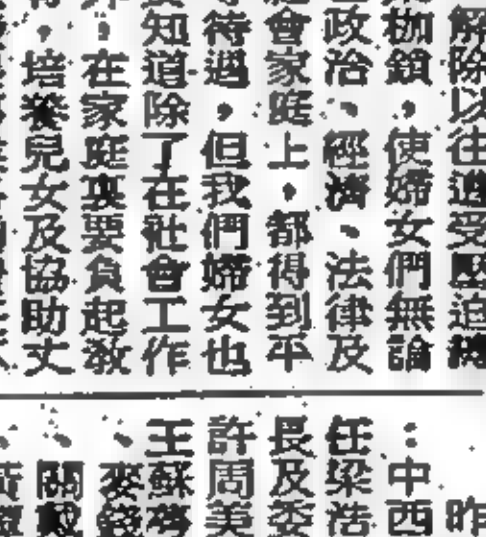 解除以往遭受壓迫
枷鎖，使婦女們無論
政治、經濟、法律及
會家庭上，都得到平
待遇，但我們婦女也
知道除了在社會工作
在家庭裏要負起教
，培養兒女及協助丈
昨
：中西
任梁浩
長及委
許周美
王蘇
麥錢
關